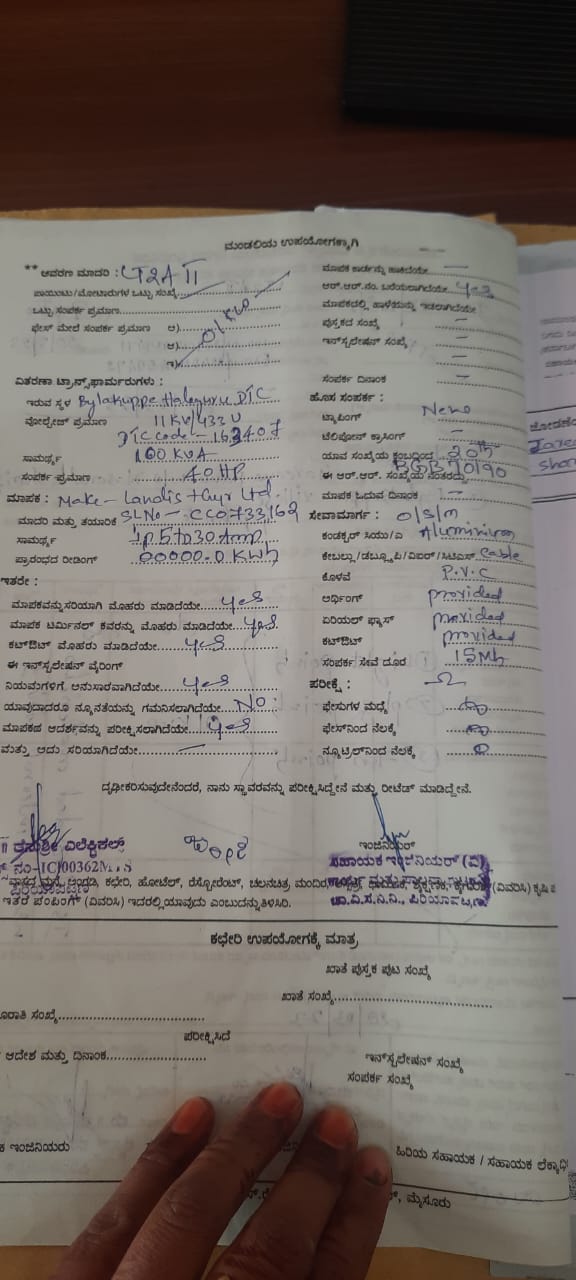 ಮಂಡಲಿಯ ಉಪಯೋಗಕ್ಕಾಗಿ
** ಆವರಣ ಮಾದರಿ :
ಮಾಪಕ ಕಾರ್ಡನ್ನು ಹಾಕಿದೆಯೇ
ಪಾಯಿಂಟು/ಮೋಟಾರುಗಳ ಒಟ್ಟು ಸಂಖ್ಯೆ
ಆರ್.ಆರ್.ನಂ. ಬರೆಯಲಾಗಿದೆಯೇ yes
ಒಟ್ಟು ಸಂಪರ್ಕ ಪ್ರಮಾಣ
ಮಾಪಕದಲ್ಲಿ ಹಾಳೆಯನ್ನು ಇಡಲಾಗಿದೆಯೇ
ಫೇಸ್ ಮೇಲೆ ಸಂಪರ್ಕ ಪ್ರಮಾಣ ಅ)
ಪುಸ್ತಕದ ಸಂಖ್ಯೆ
ಆ)
ಇನ್‌ಸ್ಟಲೇಷನ್ ಸಂಖ್ಯೆ
ಇ)
ಸಂಪರ್ಕ ದಿನಾಂಕ
ವಿತರಣಾ ಟ್ರಾನ್ಸ್‌ಫಾರ್ಮರುಗಳು :
ಹೊಸ ಸಂಪರ್ಕ :
ಇರುವ ಸ್ಥಳ Bylakuppe Haleguru DTC
ಟ್ಯಾಪಿಂಗ್
ವೋಲ್ಟೇಜ್ ಪ್ರಮಾಣ 11KV/433V
ಟೆಲಿಫೋನ್ ಕ್ರಾಸಿಂಗ್ —
DTC code - 163407
ಯಾವ ಸಂಖ್ಯೆಯ ಕಂಬದಿಂದ 20th
ಸಾಮರ್ಥ್ಯ 100 KVA
ಈ ಆರ್.ಆರ್. ಸಂಖ್ಯೆಯ ನಂತರದ್ದು BGB70190
ಸಂಪರ್ಕ ಪ್ರಮಾಣ 40HP
ಮಾಪಕ ಓದುವ ದಿನಾಂಕ —
ಮಾಪಕ : Make - Landis + Gyr Ltd.
ಸೇವಾಮಾರ್ಗ : O/S/M
ಮಾದರಿ ಮತ್ತು ತಯಾರಿಕೆ SLNo - CC0733162
ಕಂಡಕ್ಟರ್ ಸಿಯು/ಎ Aluminium
ಸಾಮರ್ಥ್ಯ 1p 5to30 Amp
ಕೇಬಲ್ಲು/ಡಬ್ಲ್ಯೂಪಿ/ವಿಐಆರ್/ಸಿಟಿಎಸ್ Cable
ಪ್ರಾರಂಭದ ರೀಡಿಂಗ್ 00000.0 KWh
ಕೊಳವೆ P.V.C
ಇತರೇ :
ಅರ್ಥಿಂಗ್ provided
ಮಾಪಕವನ್ನು ಸರಿಯಾಗಿ ಮೊಹರು ಮಾಡಿದೆಯೇ yes
ಏರಿಯಲ್ ಫ್ಯೂಸ್ provided
ಮಾಪಕ ಟರ್ಮಿನಲ್ ಕವರನ್ನು ಮೊಹರು ಮಾಡಿದೆಯೇ yes
ಕಟ್‌ಔಟ್ provided
ಕಟ್‌ಔಟ್ ಮೊಹರು ಮಾಡಿದೆಯೇ yes
ಸಂಪರ್ಕ ಸೇವೆ ದೂರ 15Mts
ಈ ಇನ್‌ಸ್ಟಲೇಷನ್ ವೈರಿಂಗ್
ನಿಯಮಗಳಿಗೆ ಅನುಸಾರವಾಗಿದೆಯೇ yes
ಪರೀಕ್ಷೆ : Ω
ಯಾವುದಾದರೂ ನ್ಯೂನತೆಯನ್ನು ಗಮನಿಸಲಾಗಿದೆಯೇ No
ಫೇಸುಗಳ ಮಧ್ಯೆ
ಮಾಪಕದ ಆದರ್ಶವನ್ನು ಪರೀಕ್ಷಿಸಲಾಗಿದೆಯೇ yes
ಫೇಸ್‌ನಿಂದ ನೆಲಕ್ಕೆ
ಮತ್ತು ಅದು ಸರಿಯಾಗಿದೆಯೇ —
ನ್ಯೂಟ್ರಲ್‌ನಿಂದ ನೆಲಕ್ಕೆ
ದೃಢೀಕರಿಸುವುದೇನೆಂದರೆ, ನಾನು ಸ್ಥಾವರವನ್ನು ಪರೀಕ್ಷಿಸಿದ್ದೇನೆ ಮತ್ತು ರೀಟೆಡ್ ಮಾಡಿದ್ದೇನೆ.
ಇಂಜಿನಿಯರ್
ಸಹಾಯಕ ಇಂಜಿನಿಯರ್ (ವಿ)
ವಾಸದ ಮನೆ, ಅಂಗಡಿ, ಕಛೇರಿ, ಹೋಟೆಲ್, ರೆಸ್ಟೋರೆಂಟ್, ಚಲನಚಿತ್ರ ಮಂದಿರ, (ವಿವರಿಸಿ) ಕೃಷಿ
ಇತರ ಪಂಪಿಂಗ್ (ವಿವರಿಸಿ) ಇದರಲ್ಲಿ ಯಾವುದು ಎಂಬುದನ್ನು ತಿಳಿಸಿರಿ.
ಚಾ.ವಿ.ಸ.ನಿ.ನಿ., ಪಿರಿಯಾಪಟ್ಟಣ
ಕಛೇರಿ ಉಪಯೋಗಕ್ಕೆ ಮಾತ್ರ
ಖಾತೆ ಪುಸ್ತಕ ಪುಟ ಸಂಖ್ಯೆ
ಖಾತೆ ಸಂಖ್ಯೆ
ಪರೀಕ್ಷಿಸಿದೆ
ಆದೇಶ ಮತ್ತು ದಿನಾಂಕ
ಇನ್‌ಸ್ಟಲೇಷನ್ ಸಂಖ್ಯೆ
ಸಂಪರ್ಕ ಸಂಖ್ಯೆ
ಇಂಜಿನಿಯರು
ಹಿರಿಯ ಸಹಾಯಕ / ಸಹಾಯಕ
ಮೈಸೂರು